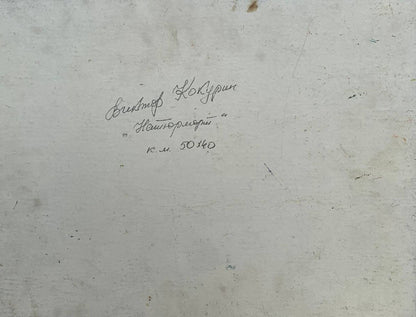 Виктор Кокурин
"Натюрморт"
к.м. 50х40